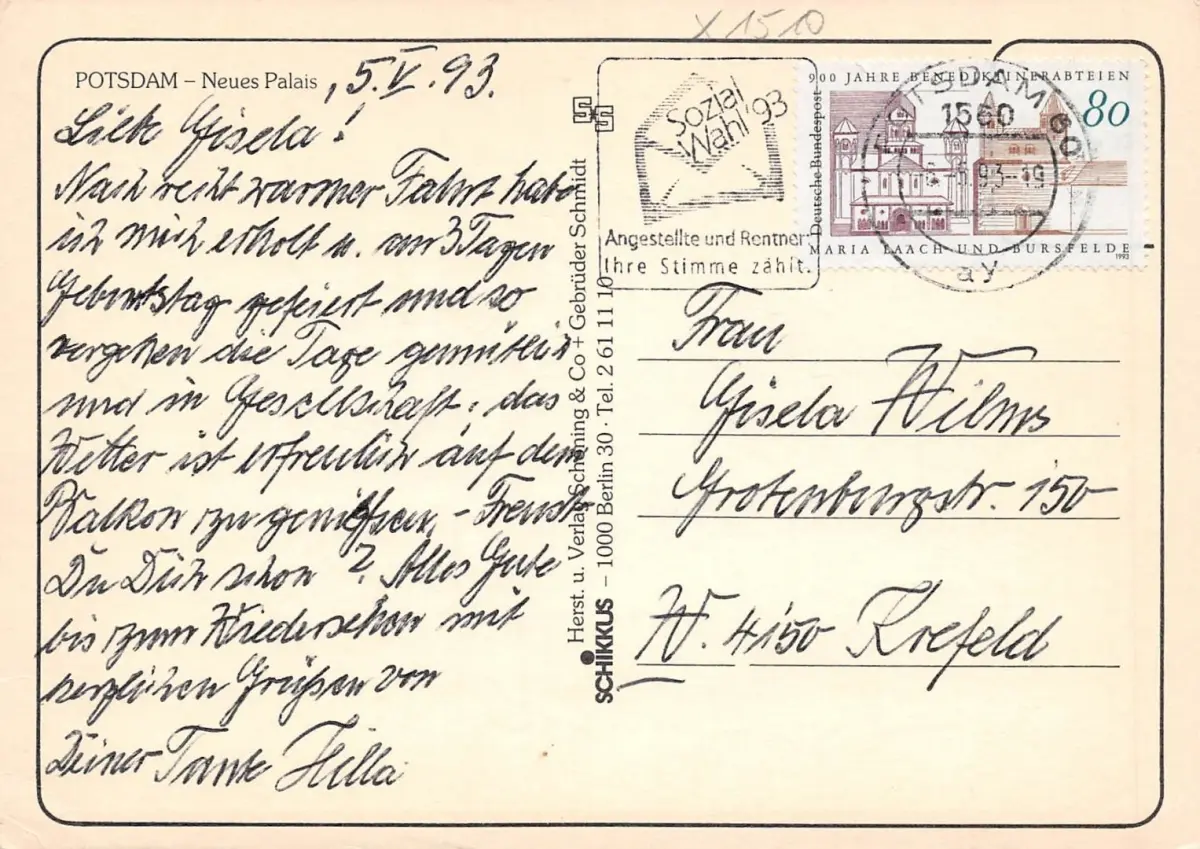 x 1510
POTSDAM – Neues Palais , 5.V.93.
Liebe Gisela!
Nach recht warmer Fahrt habe
ich mich erholt u. vor 3 Tagen
Geburtstag gefeiert und so
vergehen die Tage gemütlich
und in Gesellschaft, das
Wetter ist erfreulich auf dem
Balkon zu genießen, – Freust
Du Dich schon? Alles Gute
bis zum Wiedersehen mit
herzlichen Grüßen von
Deiner Tante Hilla
Herst. u. Verlag Schöning & Co + Gebrüder Schmidt
SCHIKKUS – 1000 Berlin 30 · Tel. 2 61 11 10
Sozial
Wahl 93
Angestellte und Rentner:
Ihre Stimme zählt.
900 JAHRE BENEDIKTINERABTEIEN
80
Deutsche Bundespost
MARIA LAACH UND BURSFELDE
1993
POTSDAM 60
1560
93-19
ay
Frau
Gisela Wilms
Grotenburgstr. 150
W. 4150 Krefeld